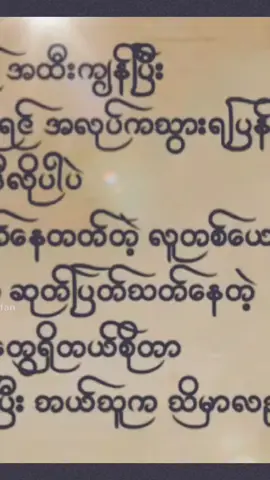 အထီးကျန်ပြီး
ရင် အလုပ်ကသွားရပြန်
လိုပါပဲ
နေတတ်တဲ့ လူတစ်ယော
ဆုတ်ပြတ်သတ်နေတဲ့
တွေရှိတယ်ဆိုတာ
ပြီး ဘယ်သူက သိမှာလဲ